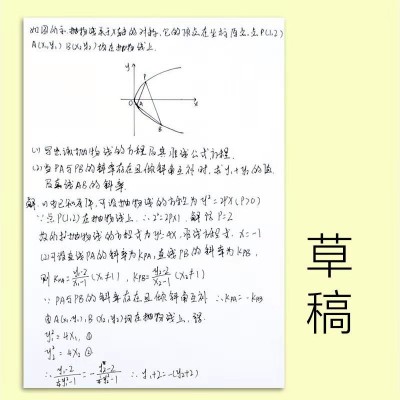 如图所示,抛物线关于x轴的对称,它的顶点在坐标原点,点P(1,2)
A(x₁,y₁) B(x₂,y₂)均在抛物线上.
y
P
O
A
x
B
(1) 写出该抛物线的方程及其准线公式方程.
(2)当PA与PB的斜率存在且倾斜角互补时,求y₁+y₂的值
及直线AB的斜率.
解. (1)由已知条件,可设抛物线的方程为y²=2PX(P>0)
∵点P(1,2)在抛物线上 ∴2²=2P×1. 解得P=2
故所求抛物线的方程为y²=4x. 准线方程: x=-1
(2)可设直线PA的斜率为KPA,直线PB的斜率为KPB,
则KPA=y₁-2/x₁-1(x₁≠1), KPB=y₂-2/x₂-1(x₂≠1)
∵PA与PB的斜率存在且倾斜角互补 ∴KPA=-KPB
由A(x₁,y₁),B(x₂,y₂)均在抛物线上,得.
y₁²=4x₁ ①
y₂²=4x₂ ②
∴ y₁-2/¼y₁²-1=-y₂-2/¼y₂²-1 ∴y₁+2=-(y₂+2)
草稿